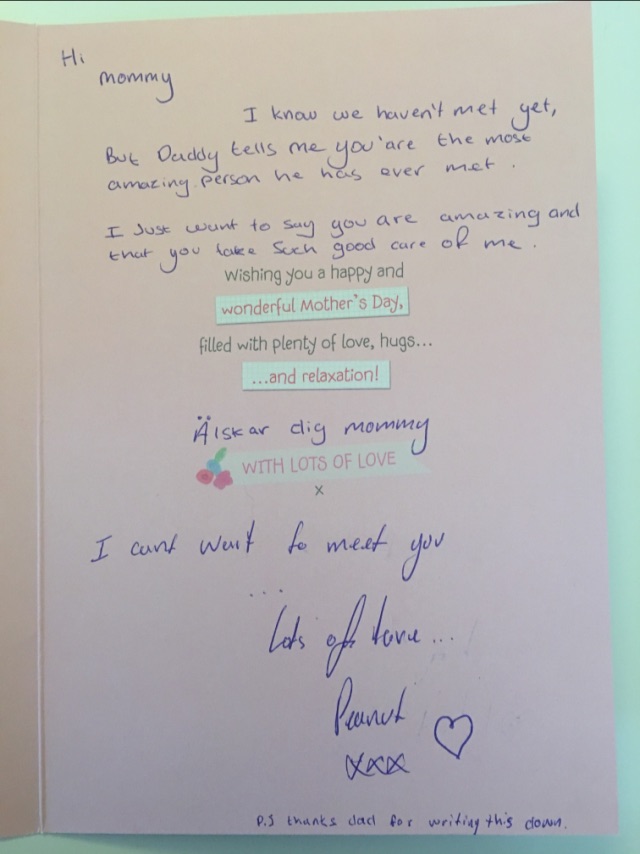 Hi
mommy
I know we haven't met yet,
But Daddy tells me you are the most
amazing person he has ever met.
I Just want to say you are amazing and
that you take such good care of me.
Wishing you a happy and
wonderful Mother's Day,
filled with plenty of love, hugs...
...and relaxation!
Älskar dig mommy
WITH LOTS OF LOVE
x
I cant wait to meet you
...
Lots of love...
Peanut
xxx
P.S thanks dad for writing this down.